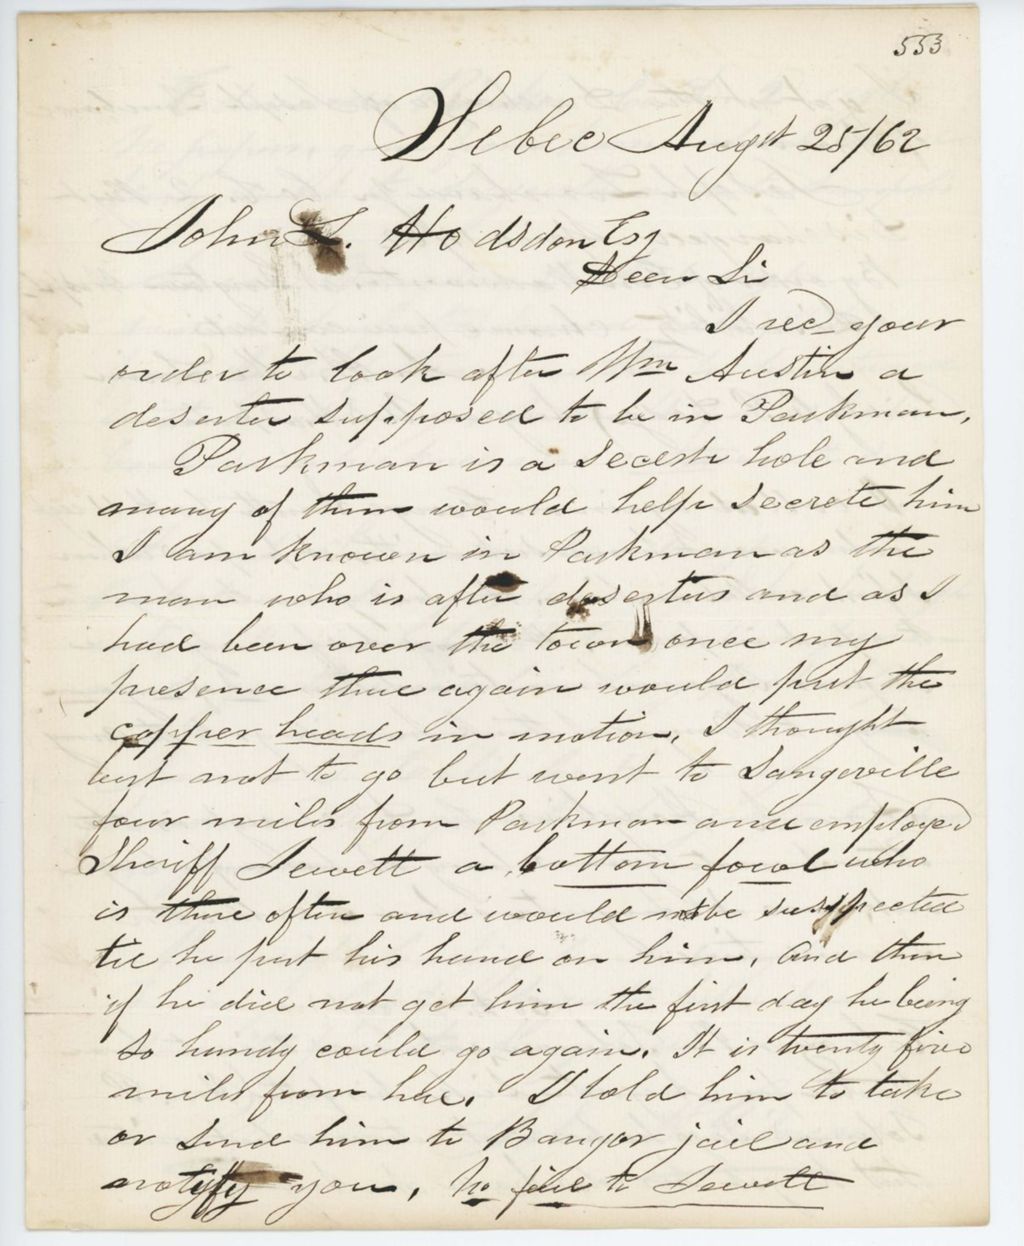 553
Sebec Augst 25/62
John L. Hodsdon Esq
Deer Sir
I recd your
order to look after Wm Austin a
deserter supposed to be in Parkman,
Parkman is a Secesh hole and
many of them would help secrete him
I am known in Parkman as the
man who is after deserters and as I
had been over the town once my
presence thue again would put the
copper heads in motion, I thought
best not to go but went to Sangerville
four miles from Parkman and employed
Sheriff Jewett a bottom fowl who
is there often and would not be suspected
till he put his hand on him, and then
if he did not get him the first day he being
so handy could go again. It is twenty five
miles from here. I told him to take
or send him to Bangor jail and
notify you, no fail to Jewett